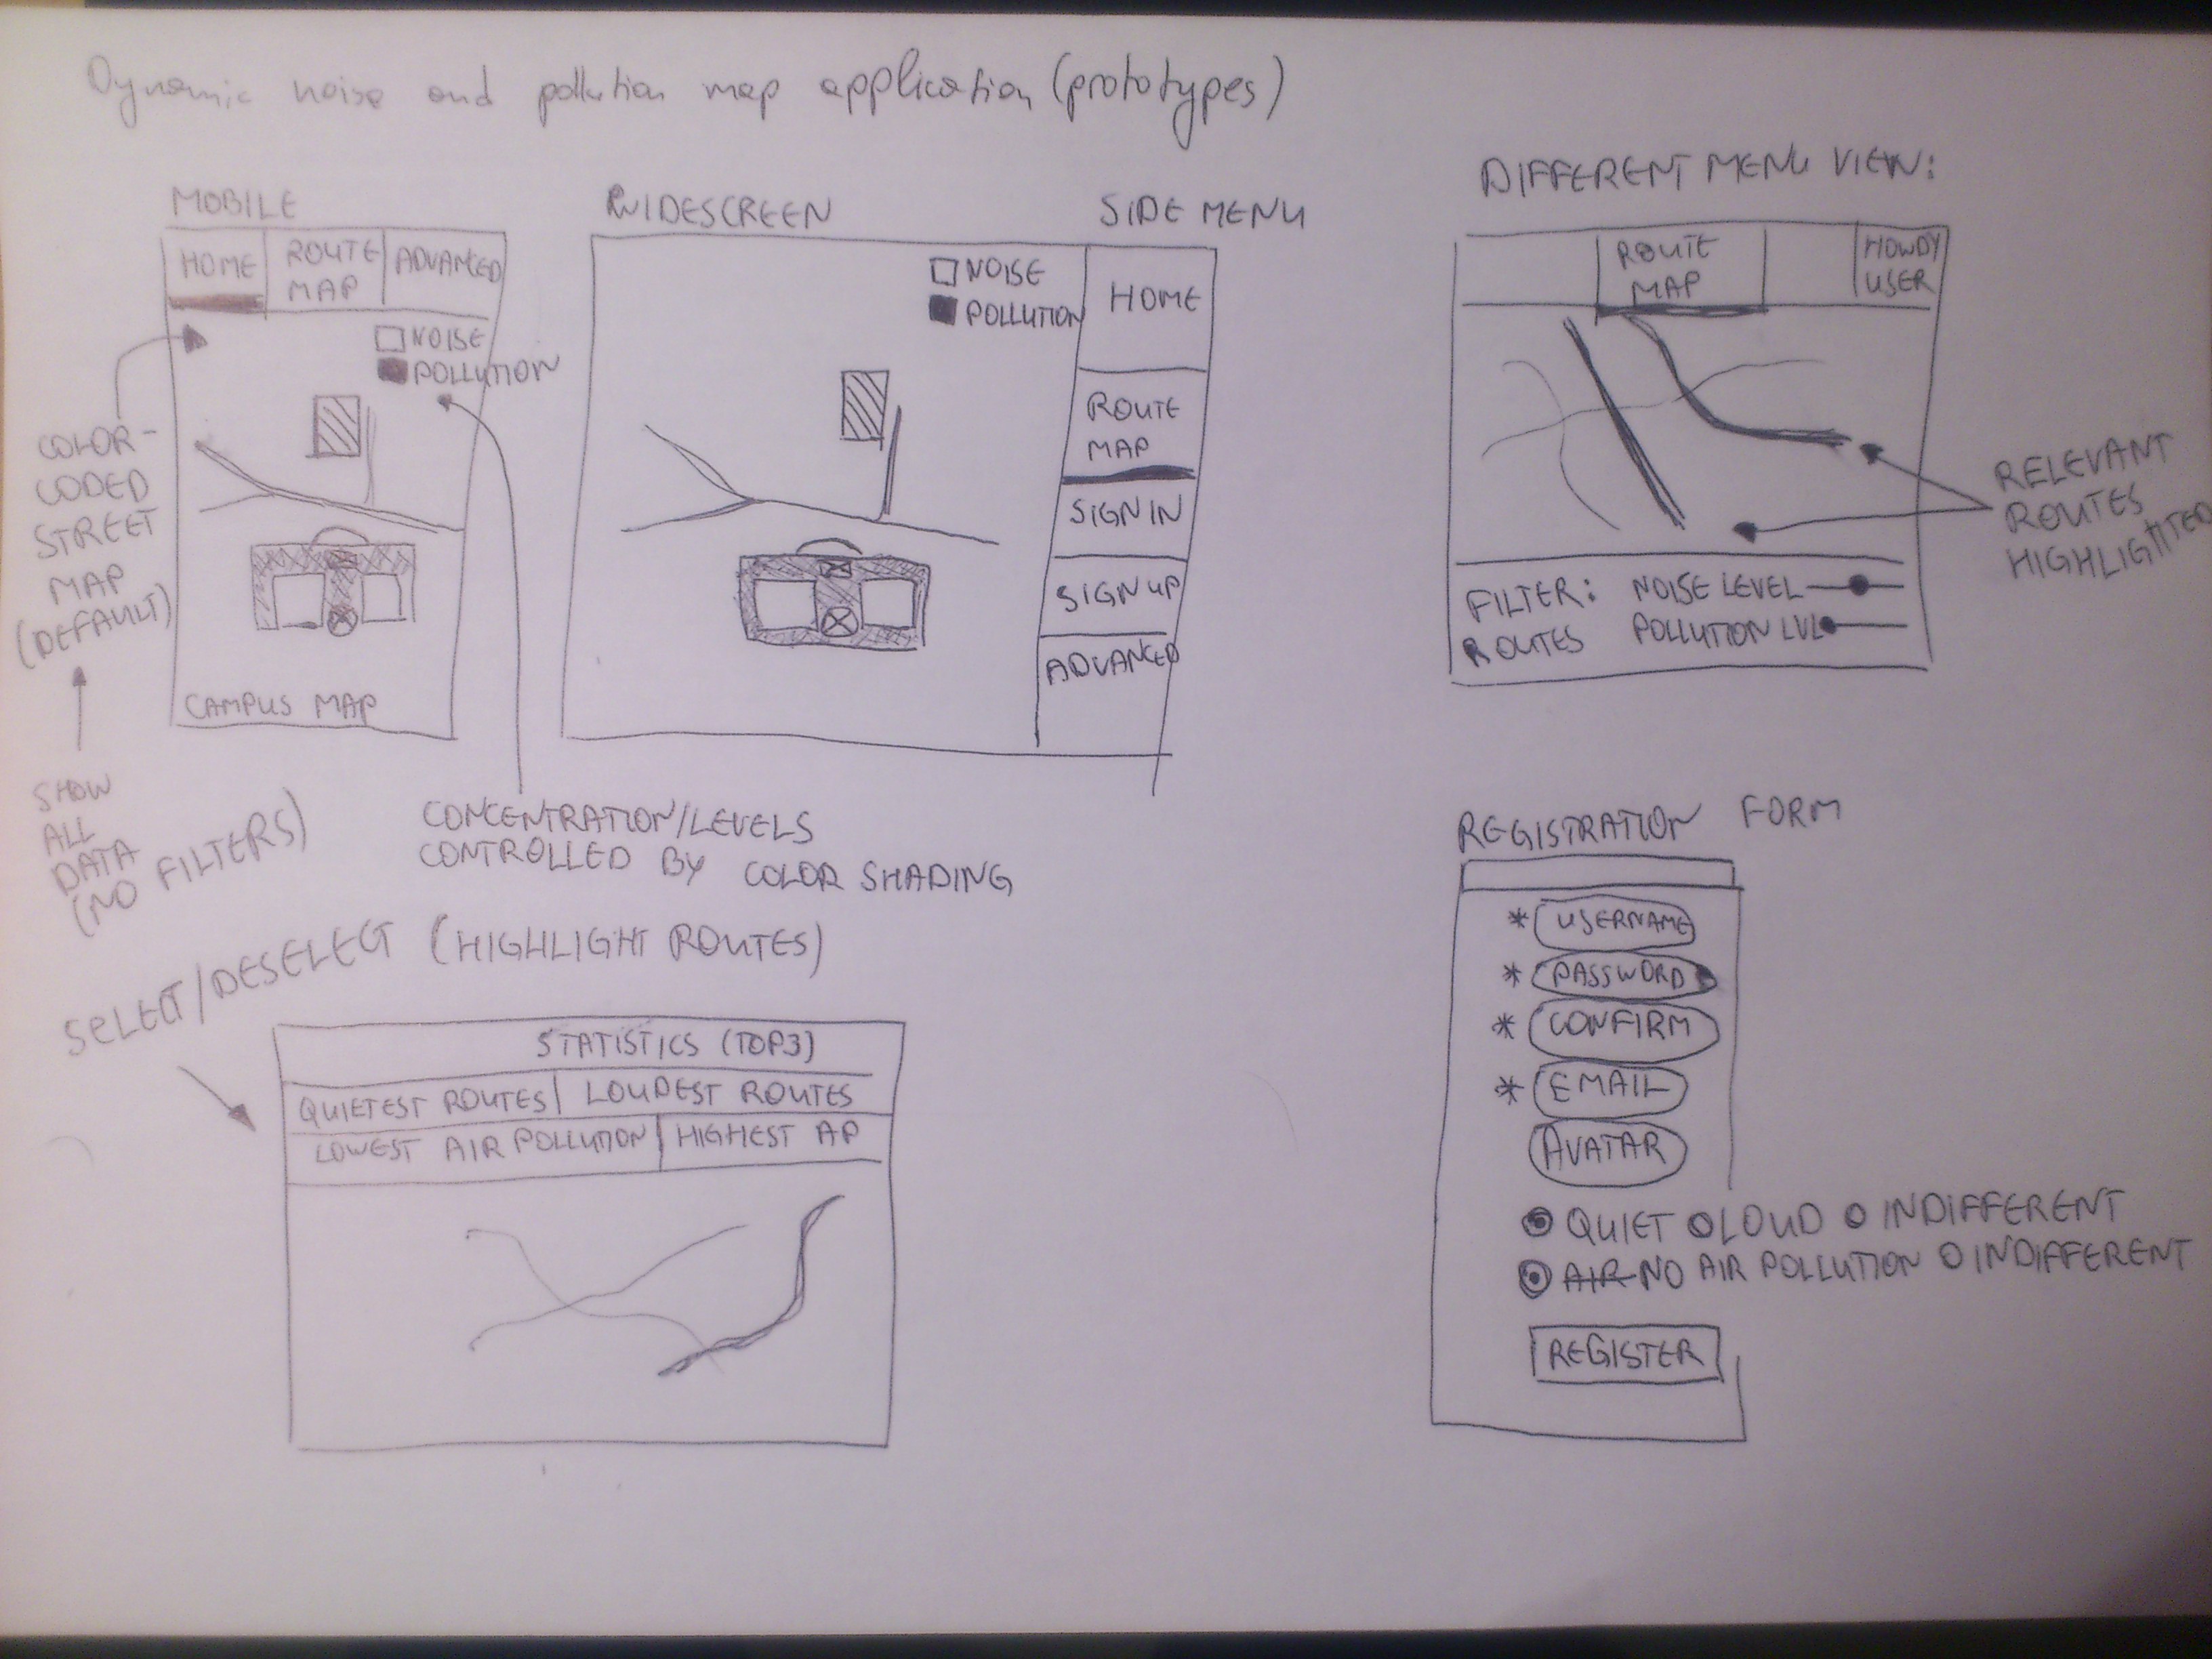 Dynamic noise and pollution map application (prototypes)
MOBILE
HOME
ROUTE
MAP
ADVANCED
NOISE
POLLUTION
CAMPUS MAP
COLOR-
CODED
STREET
MAP
(DEFAULT)
SHOW
ALL
DATA
(NO FILTERS)
CONCENTRATION/LEVELS
CONTROLLED BY COLOR SHADING
WIDESCREEN
SIDE MENU
NOISE
POLLUTION
HOME
ROUTE
MAP
SIGN IN
SIGN UP
ADVANCED
DIFFERENT MENU VIEW:
ROUTE
MAP
HOWDY
USER
RELEVANT
ROUTES
HIGHLIGHTED
FILTER:
ROUTES
NOISE LEVEL
POLLUTION LVL
SELECT/DESELECT (HIGHLIGHT ROUTES)
STATISTICS (TOP3)
QUIETEST ROUTES | LOUDEST ROUTES
LOWEST AIR POLLUTION | HIGHEST AP
REGISTRATION FORM
* USERNAME
* PASSWORD
* CONFIRM
* EMAIL
AVATAR
QUIET LOUD INDIFFERENT
AIR NO AIR POLLUTION INDIFFERENT
REGISTER